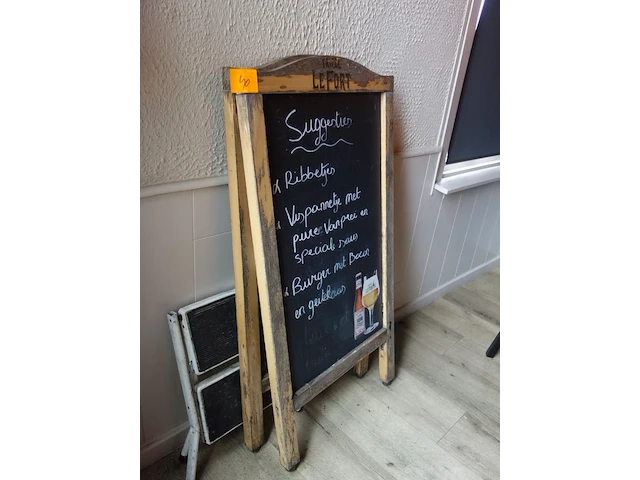 40
TRIPLE
LEFORT
Suggesties
Ribbetjes
Vispannetje met
puree van prei en
speciale saus
Burger met Bacon
en geitekaas